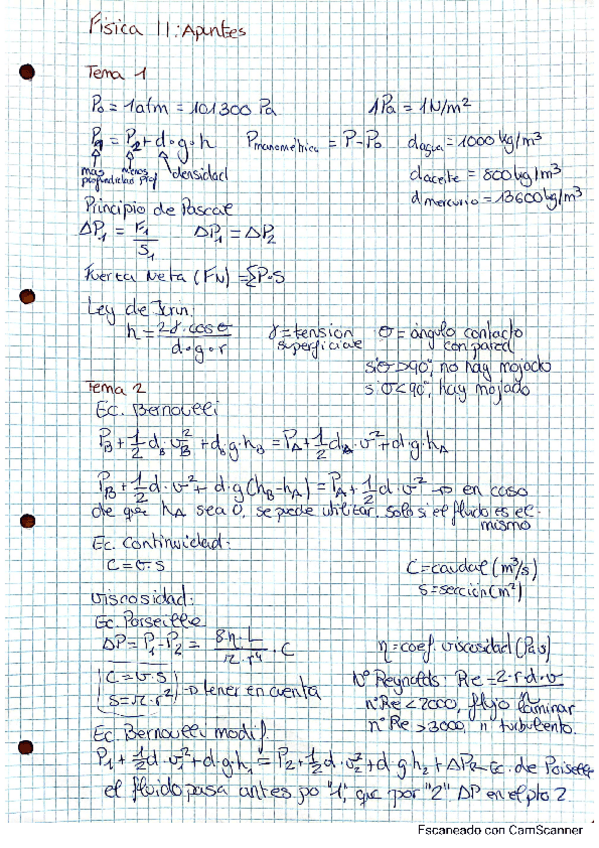 Física II: Apuntes
Tema 1
P₀ = 1 atm = 101300 Pa    1 Pa = 1 N/m²
P₁ = P₂ + d·g·h    Pmanométrica = P - P₀    dagua = 1000 kg/m³
más profundidad    menos prof    densidad    daceite = 800 kg/m³
dmercurio = 13600 kg/m³
Principio de Pascal
ΔP₁ = F₁/S₁    ΔP₁ = ΔP₂
Fuerza Neta (FN) = ΣP·S
Ley de Jurin:
h = 2γ·cosσ / d·g·r    γ = tension superficial    σ = ángulo contacto con pared
si σ > 90°, no hay mojado
si σ < 90°, hay mojado
Tema 2
Ec. Bernoulli
P_B + 1/2 d_B v_B² + d_B g h_B = P_A + 1/2 d_A · v² + d·g·h_A
P_B + 1/2 d·v² + d·g(h_B - h_A) = P_A + 1/2 d·v² → en caso
de que h_A sea 0, se puede utilizar. Solo si el fluido es el
mismo
Ec. Continuidad:
C = v·S    C = caudal (m³/s)
S = sección (m²)
Viscosidad:
Ec. Poiseille
ΔP = P₁ - P₂ = 8·η·L / π·r⁴ · C    η = coef. viscosidad (Pa·s)
C = v·S    Nº Reynolds: Re = 2·r·d·v / η
S = π·r² → tener en cuenta    nº Re < 2000, flujo laminar
nº Re > 3000, " turbulento.
Ec. Bernoulli modif.
P₁ + 1/2 d·v₁² + d·g·h₁ = P₂ + 1/2 d·v₂² + d g h₂ + ΔP → Ec. de Poiseille
el fluido pasa antes po "1", que por "2". ΔP en el pto 2.
Escaneado con CamScanner